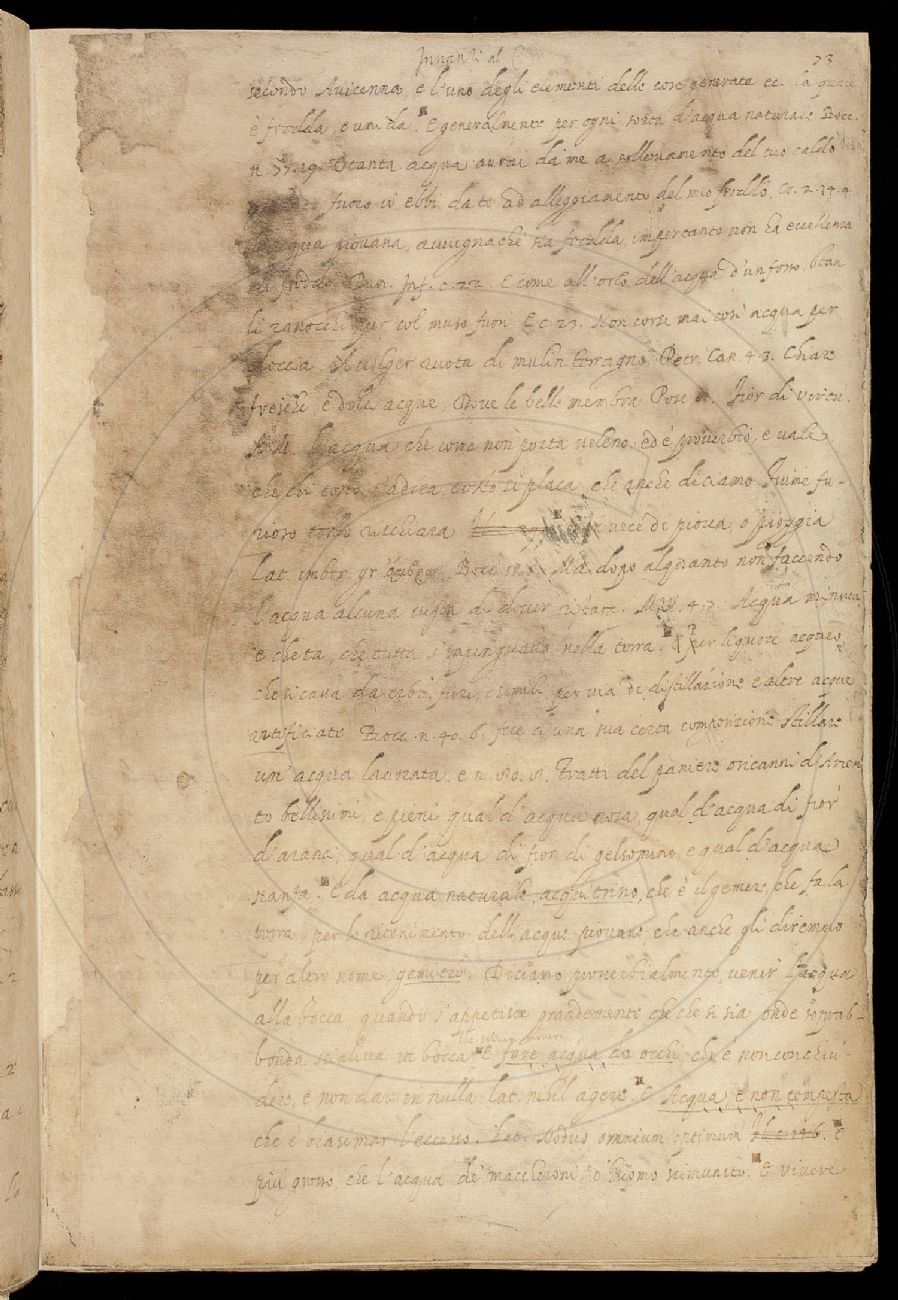 Innanzi al
73
secondo Auicenna, è l'uno degli elementi delle cose generate ec. la quale
è fredda, e umida. E generalmente per ogni sorta d'acqua naturale Bocc.
n. 77. 19. D tanta acqua aurai da me a solleuamento del tuo caldo
fuoco io ebbi da te ad alleggiamento del mio freddo Cr. 2. 24. 4
L'acqua piouana, auuignachè sia fredda, impertanto non ha eccellenza
di freddo. Dan. Inf. c. 22. E come all'orlo dell'acqua d'un fosso. Stan
li ranocchi pur col muso fuori E c. 23. Non corse mai così acqua per
doccia, A uolger ruota di mulin terragno Petr. Can. 43. Chiare
fresche, e dolci acque, Doue le belle membra Pose Fior di virtù.
A.M. L'acqua che corre non porta ueleno. ed è prouerbio, e vale
che chi tosto s'adira, tosto si placa che anche diciamo Fuire fu-
rioso tosto rischiara vece di pioua, o pioggia
Lat. imber, gr. Bocc. Ma dopo alquanto non faccendo
l'acqua alcuna uista di douer ristare. M.V. 4. 7. Acqua minuta
e cheta, che tutta s'impinguaua nella terra. per liquore acqueo
che si caua da erbe, fiori, e simili per via di distillazione e altre acque
artificiate Bocc. n. 40. 6. fece d'una sua certa composizione stillare
un'acqua lauorata. e n. 80. Tratti del paniere oricanni d'Arien
to bellissimi, e pieni qual d'acqua rosa, qual d'acqua di fior
d'aranci, qual d'acqua di fior di gelsomino, e qual d'acqua
nanfa. E da acqua naturale, acquitrino, che è il gemere, che fa la
terra per lo ritenimento dell'acque piouane, che anche gli diremmo
per altro nome, gemitio. Diciamo prouerbialmente uenir l'acqua
alla bocca quando s'appetisce grandemente che che si sia onde soprab-
bonda saliua in bocca. E fare acqua da occhi che è non conchiu-
dere, e non dare in nulla lat. nihil agere. E Acqua, e non tempesta
che è biasimar l'eccesso. Lat. Modus omnium optimum E
più grosso, che l'acqua de' maccheroni, d'huomo scimunito. E viuere